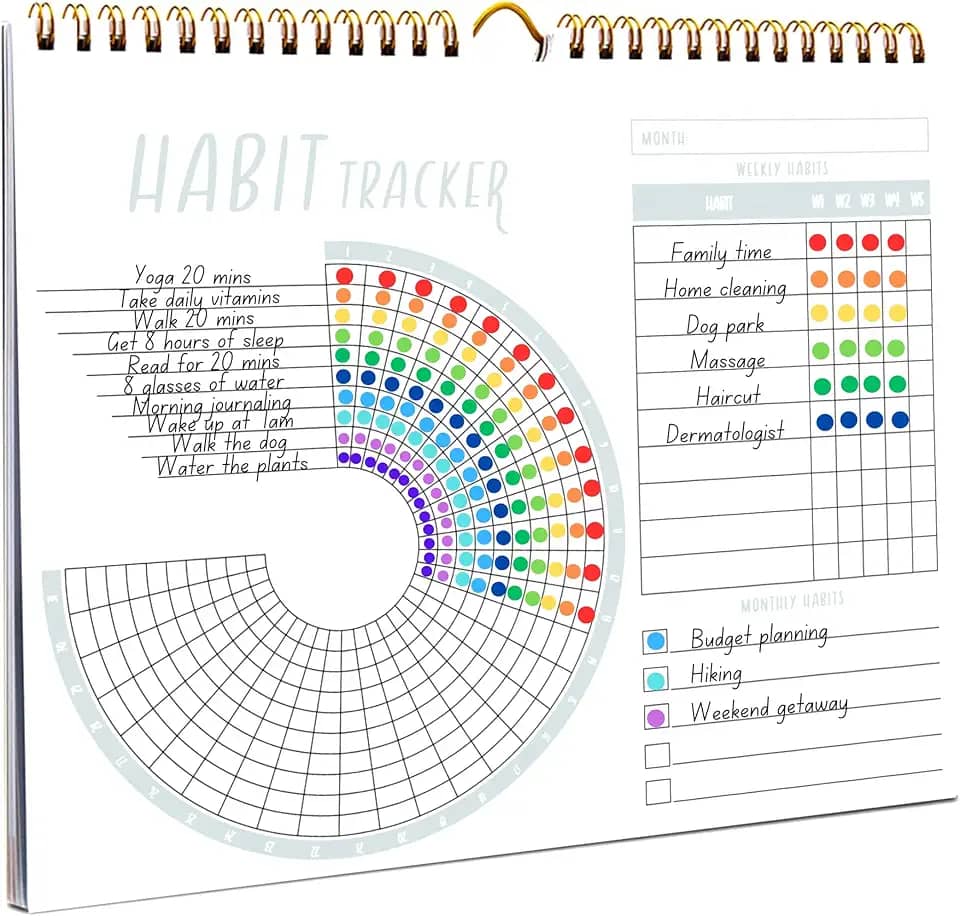 HABIT TRACKER
Yoga 20 mins
Take daily vitamins
Walk 20 mins
Get 8 hours of sleep
Read for 20 mins
8 glasses of water
Morning journaling
Wake up at 1am
Walk the dog
Water the plants
1
2
3
4
5
6
MONTH:
WEEKLY HABITS
HABIT W1 W2 W3 W4 W5
Family time
Home cleaning
Dog park
Massage
Haircut
Dermatologist
MONTHLY HABITS
Budget planning
Hiking
Weekend getaway